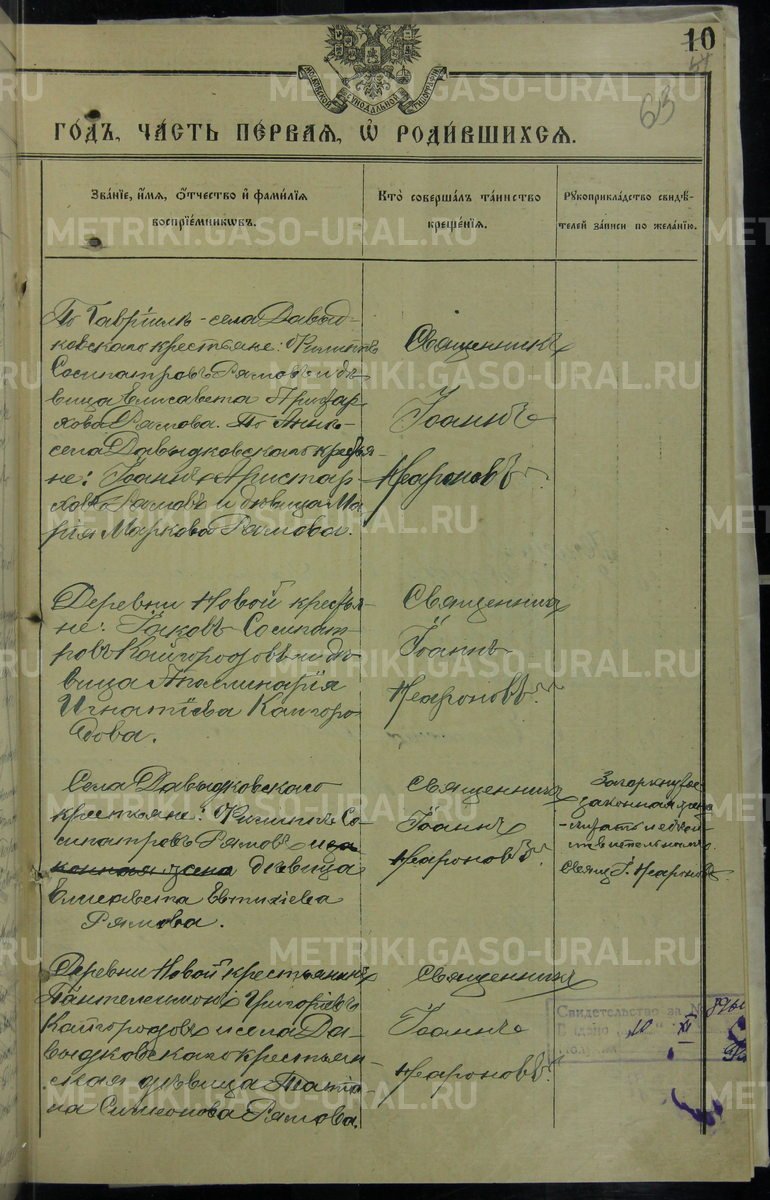 10
63
МОСКОВСКОЙ СѴНОДАЛЬНОЙ ТИПОГРАФІИ
ГОДЪ, ЧАСТЬ ПЕРВАЯ, Ѡ РОДИВШИХСЯ.
Званіе, имя, отчество и фамилія воспріемниковъ.
Кто совершалъ таинство крещенія.
Рукоприкладство свидѣтелей записи по желанію.
По Гавріилѣ - села Давыд-
ковскаго крестьяне: Филиппъ
Сосипатровъ Рямовъ и дѣ-
вица Елисавета Аристар
хова Рямова. По Аннѣ -
села Давыдковскаго крестья-
не: Іоаннъ Аристар-
ховъ Рямовъ и дѣвица Ма-
рія Маркова Рямова.
Священникъ
Іоаннъ
Неароновъ.
Деревни Новой крестья-
не: Іаковъ Сосипат-
ровъ Кайгородовъ и дѣ-
вица Аполлинарія
Игнатіева Кайгоро
дова.
Священникъ
Іоаннъ
Неароновъ.
Села Давыдковскаго
крестьяне: Филиппъ Со-
сипатровъ Рямовъ и за
конная жена дѣвица
Елисавета Евтихіева
Рямова.
Священникъ
Іоаннъ
Неароновъ.
Зачеркнутое
законная жена
Свящ. І. Неароновъ.
Деревни Новой крестьянинъ
Пантелеимонъ Григоріевъ
Кайгородовъ и села Да-
выдковскаго крестьян-
ская дѣвица Татія
на Симеонова Рямова.
Священникъ
Іоаннъ
Неароновъ.
Свидетельство за №
Выдано
METRIKI.GASO-URAL.RU